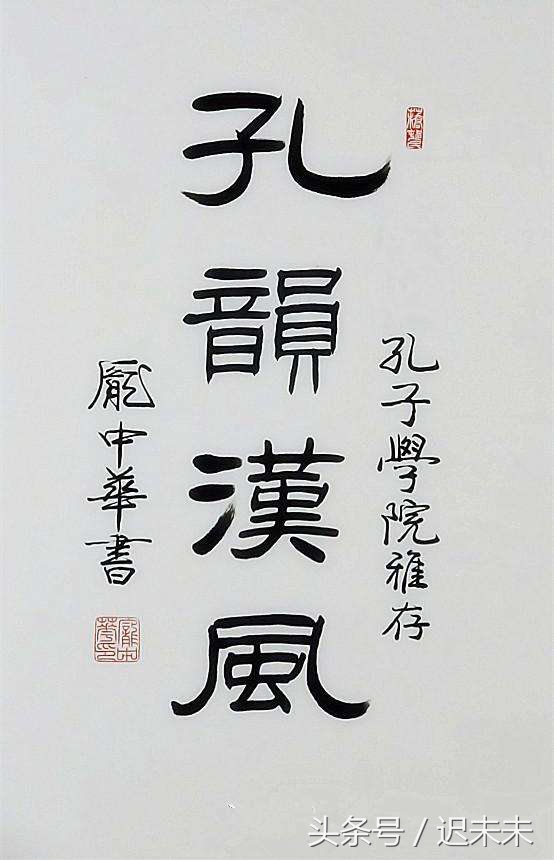 孔子學院雅存
孔韻漢風
龐中華書
龐中華印
头条号 / 迟未未